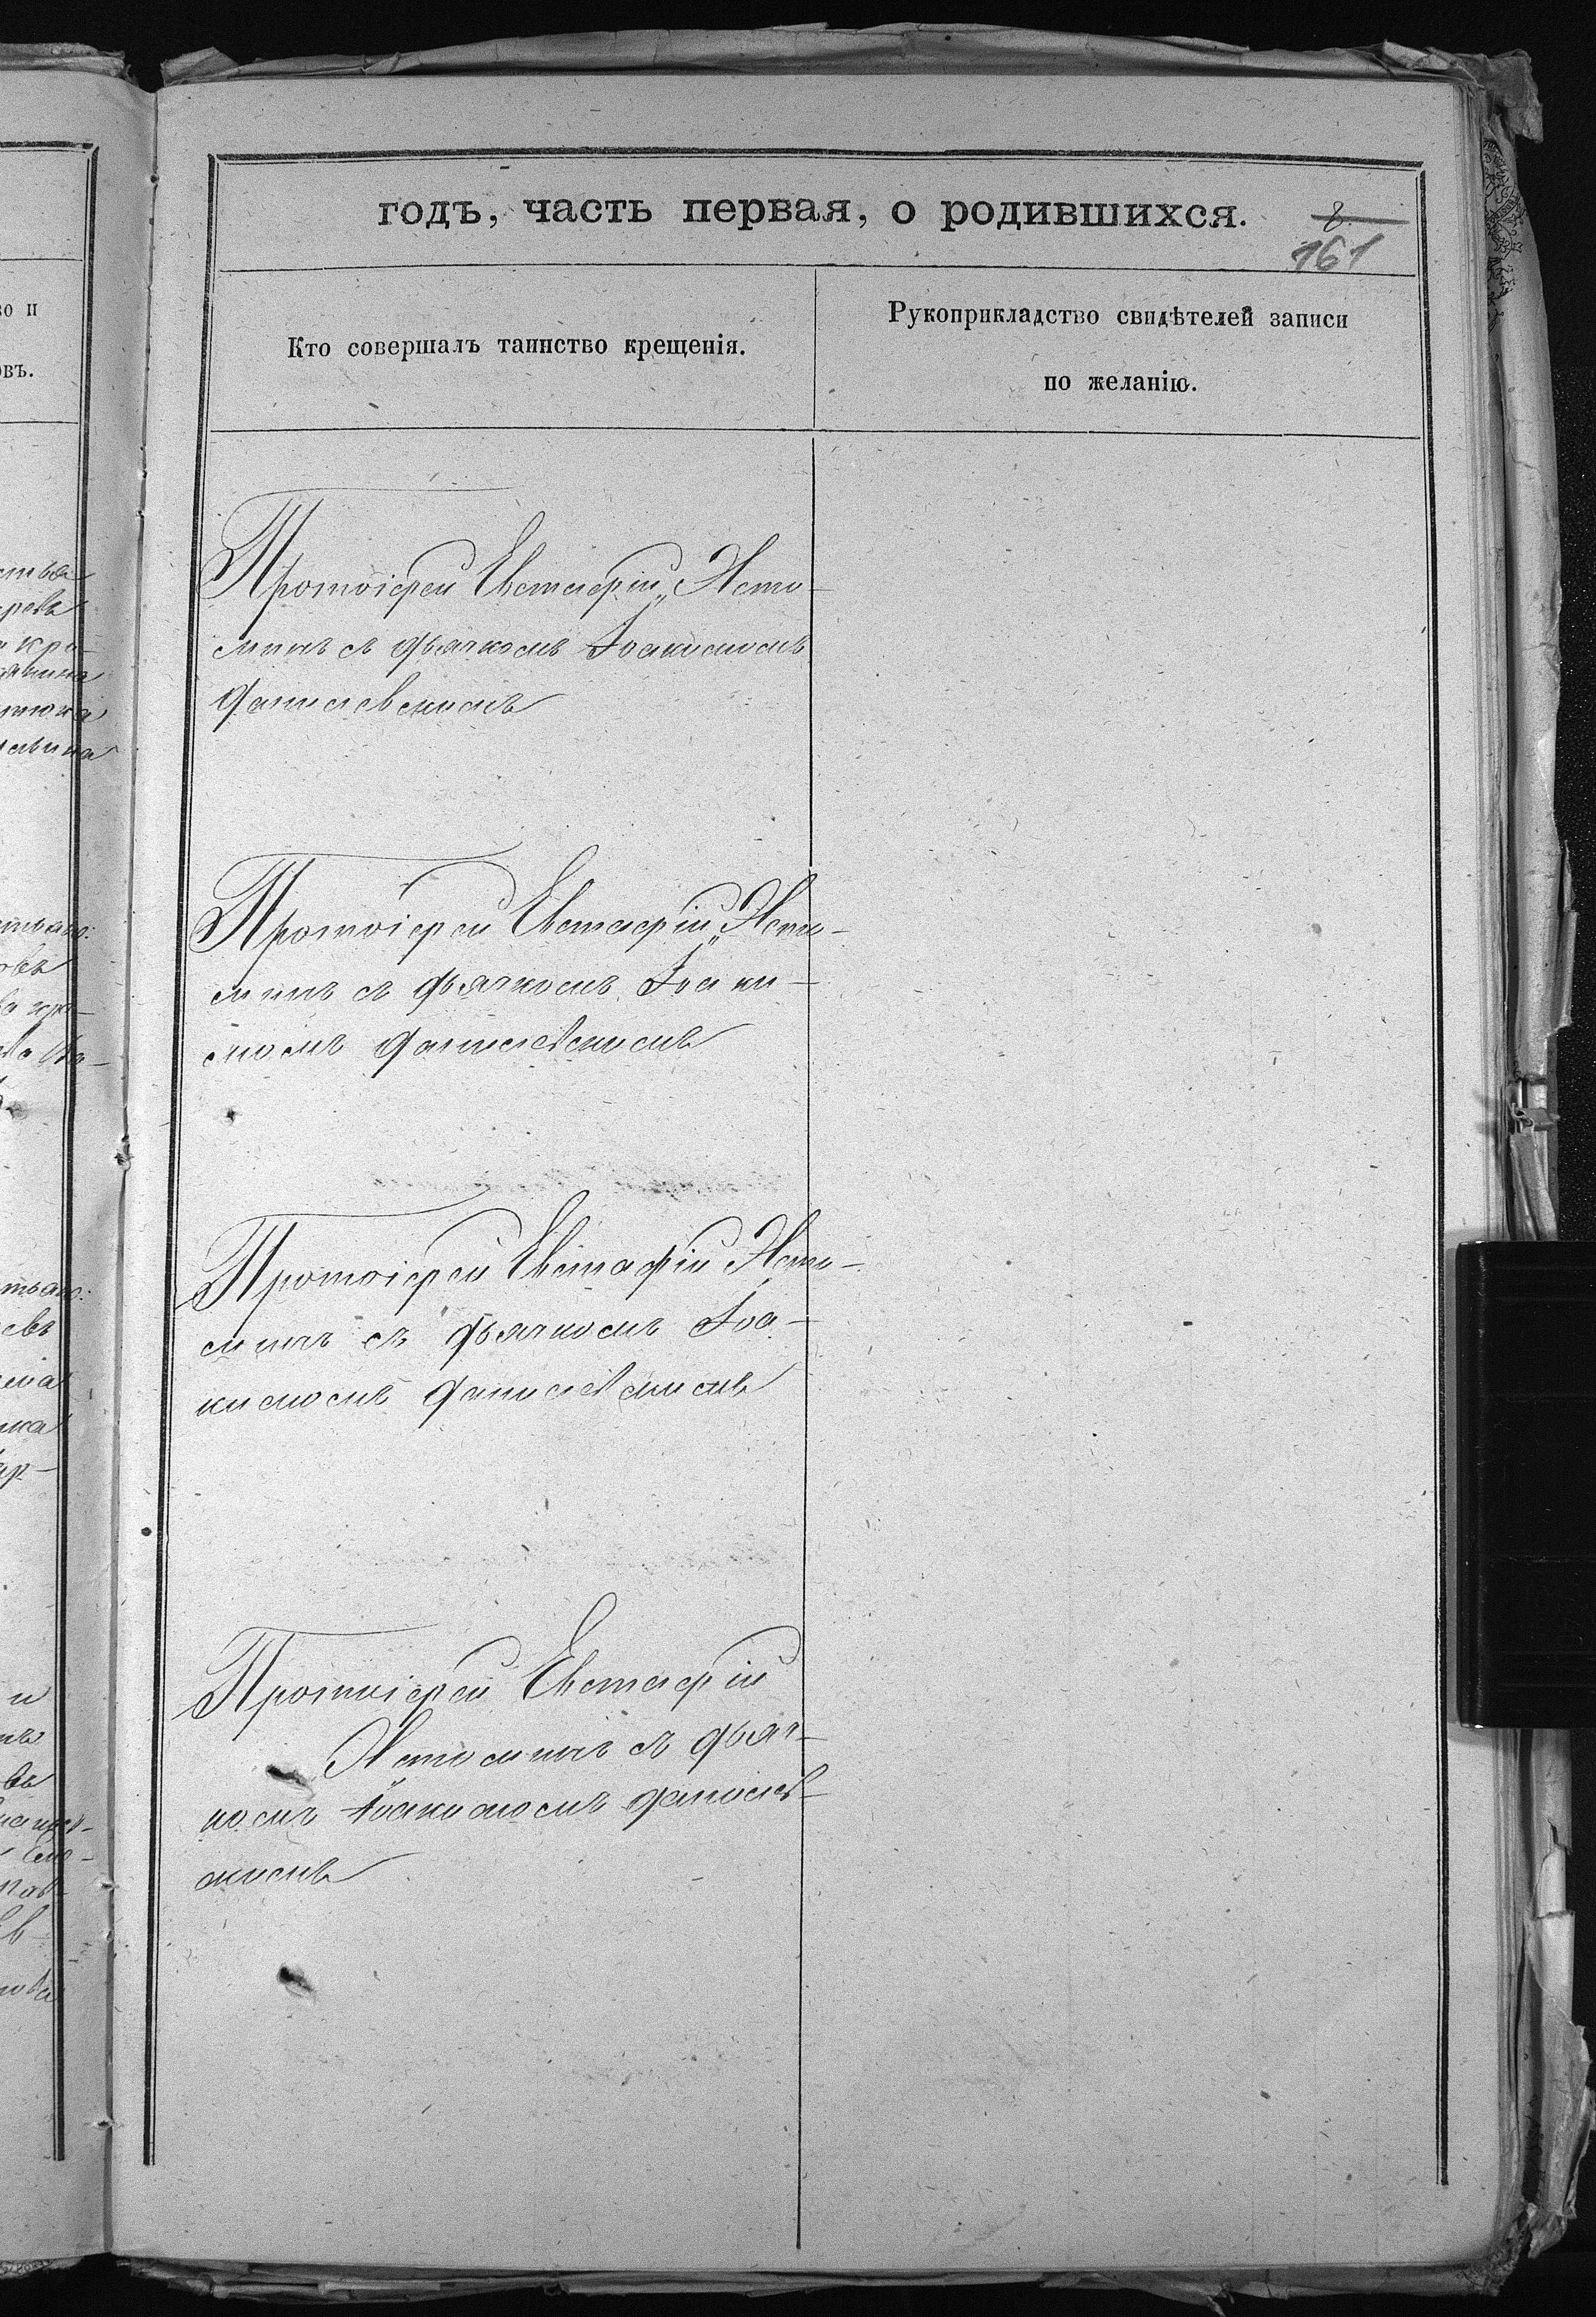 годъ, часть первая, о родившихся.
8
161
Кто совершалъ таинство крещенія.
Рукоприкладство свидѣтелей записи
по желанію.
Протоіерей Евстафій Исто-
минъ съ дьячкомъ Іоакимомъ
Данилевскимъ
Протоіерей Евстафій Исто-
минъ съ дьячкомъ Іоаки-
момъ Данилевскимъ
Протоіерей Евстафій Исто-
минъ съ дьячкомъ Іоа-
кимомъ Данилевскимъ
Протоіерей Евстафій
Истоминъ съ дьяч-
комъ Іоакимомъ Данилев-
скимъ